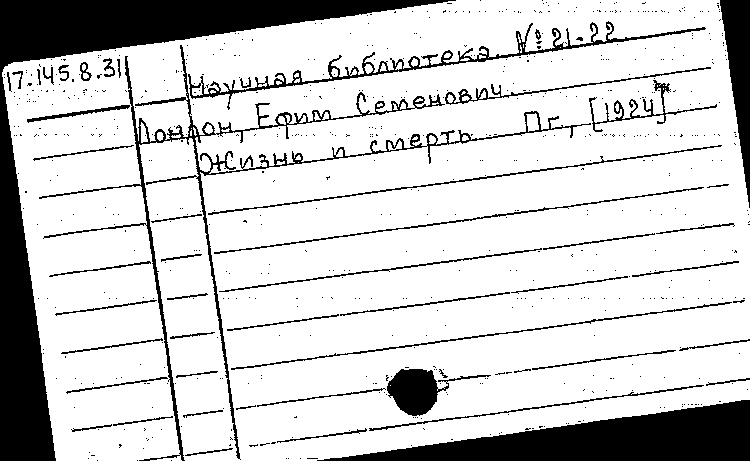 17.145.8.31
Научная библиотека. № 21-22
Лондон, Ефим Семенович.
Жизнь и смерть. Пг, [1924]